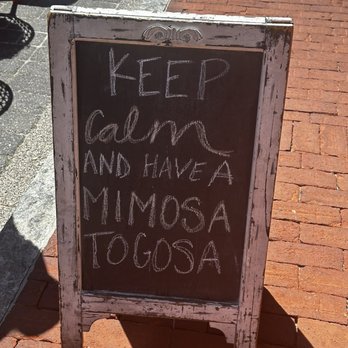 KEEP
calm
AND HAVE A
MIMOSA
TOGOSA